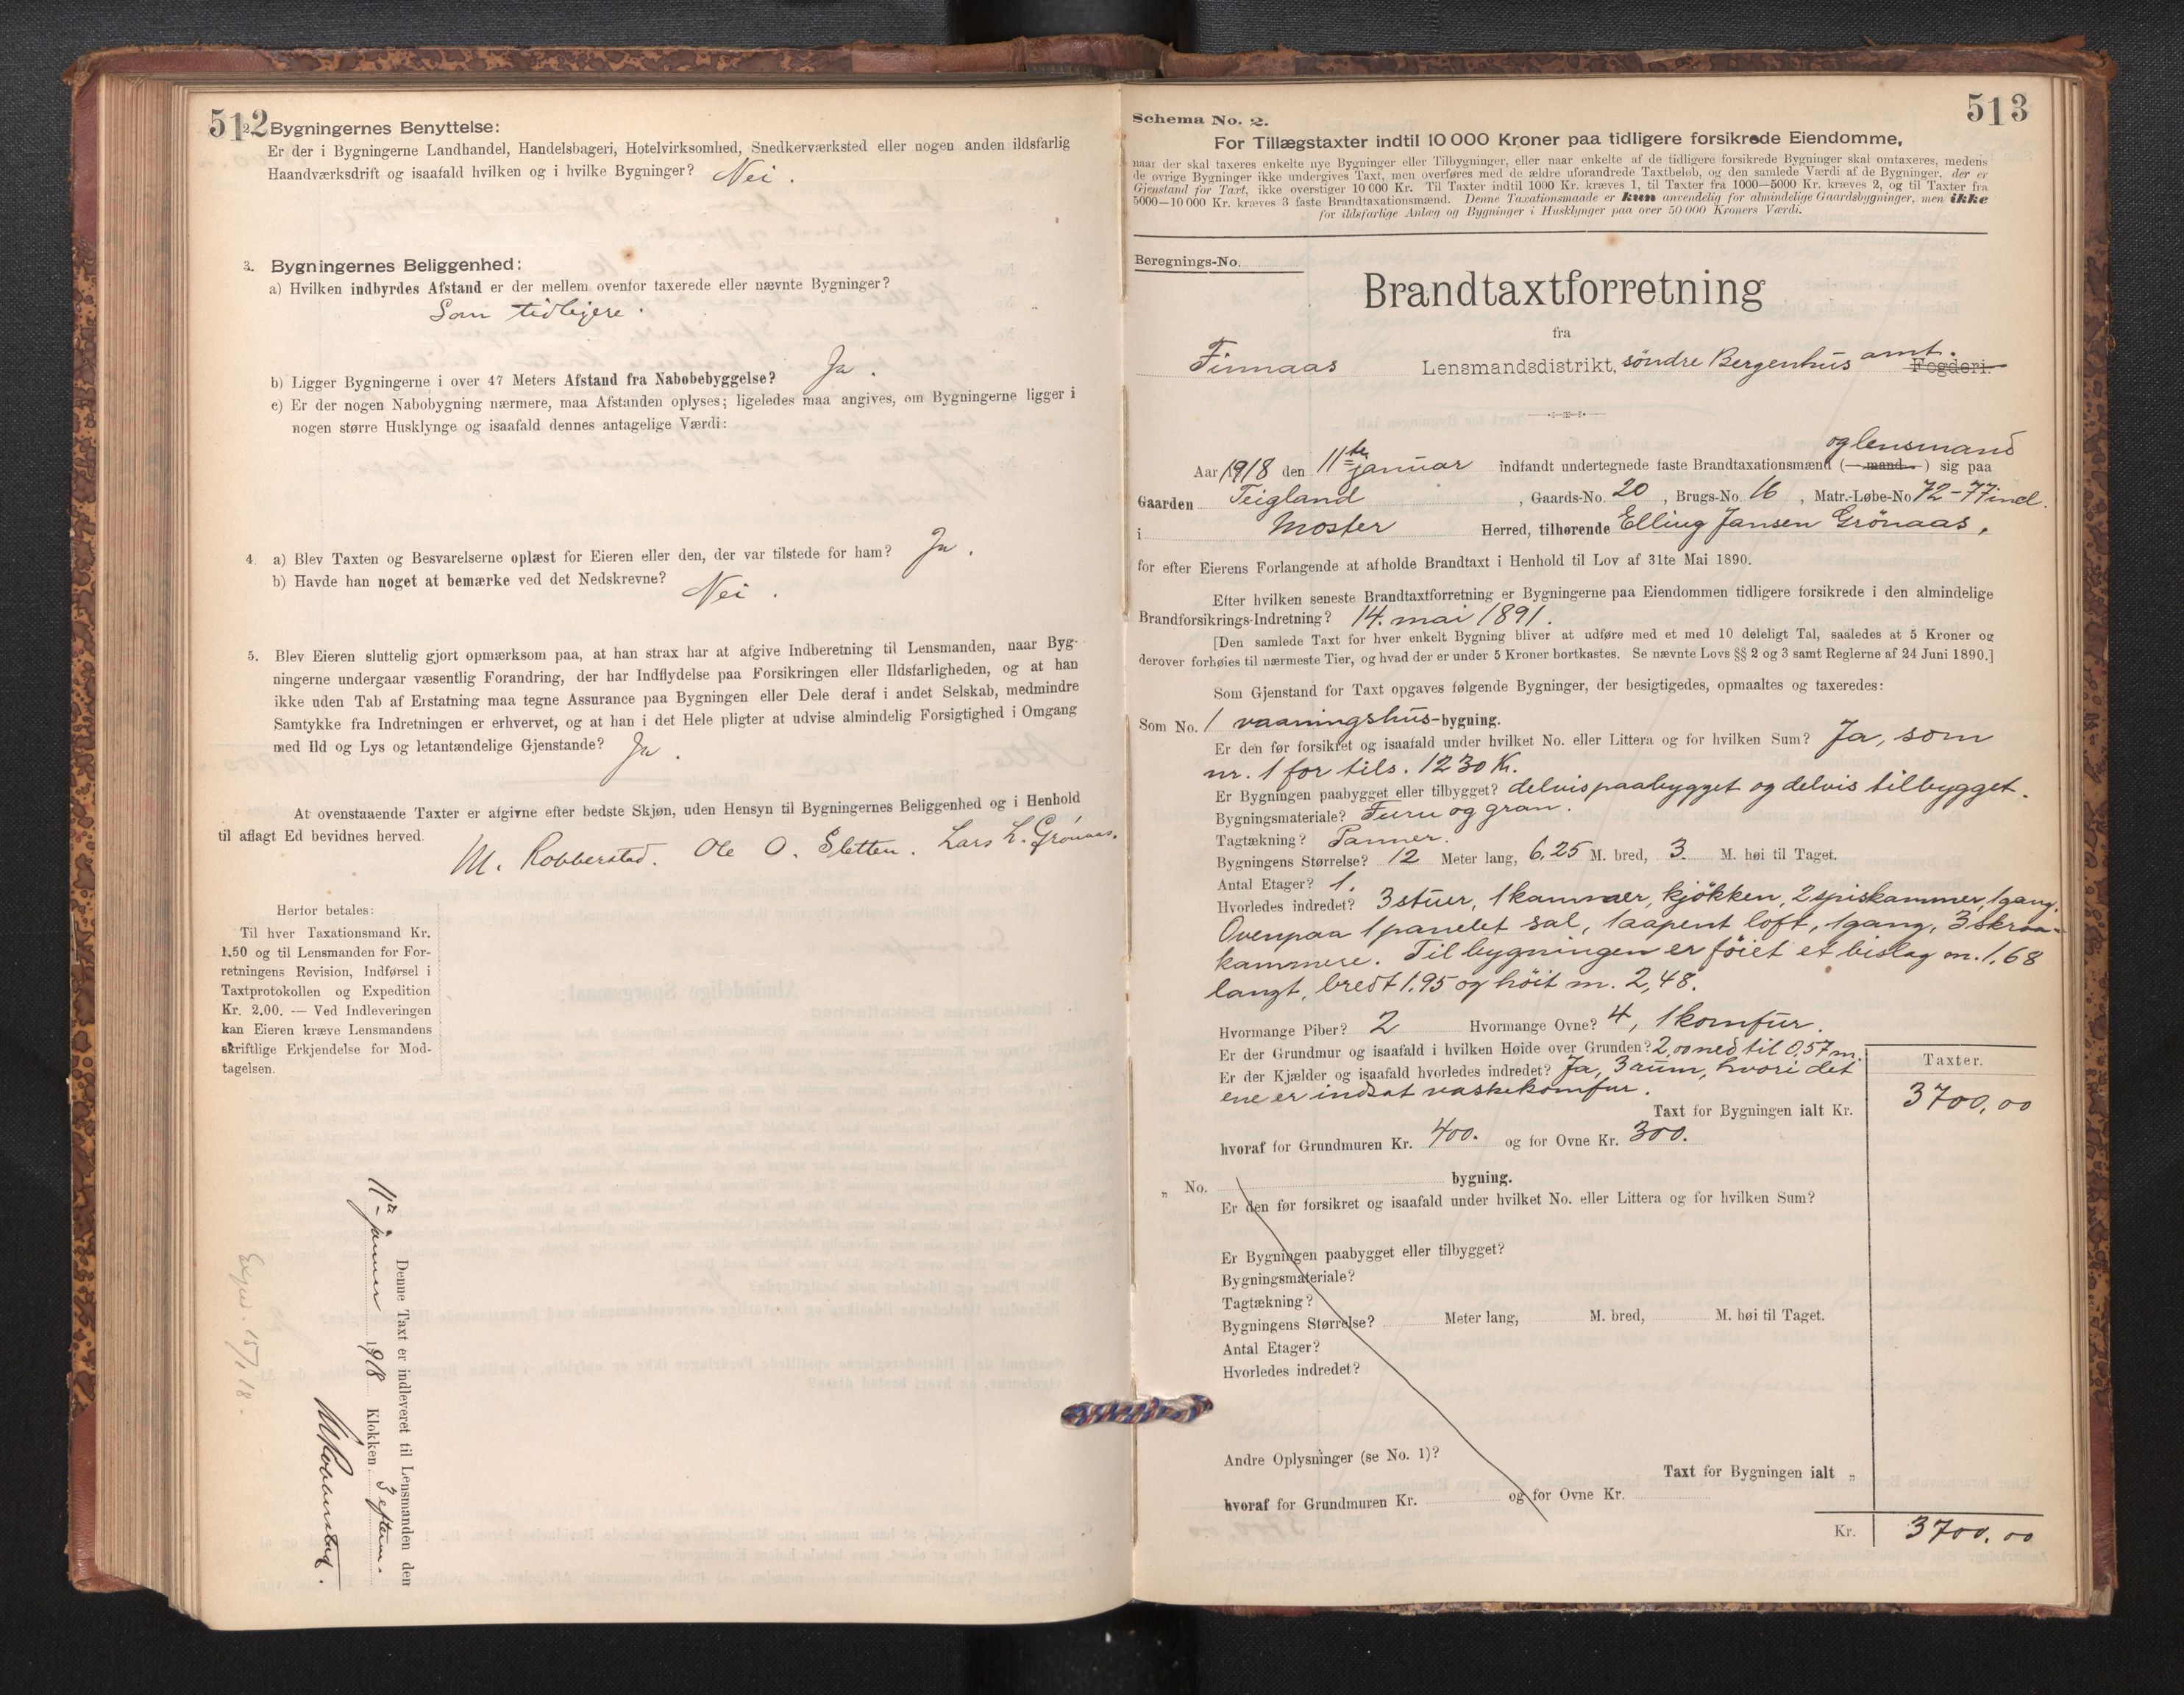 512
2. Bygningernes Benyttelse:
Er der i Bygningerne Landhandel, Handelsbageri, Hotelvirksomhed, Snedkerværksted eller nogen anden ildsfarlig
Haandværksdrift og isaafald hvilken og i hvilke Bygninger? Nei.
3. Bygningernes Beliggenhed:
a) Hvilken indbyrdes Afstand er der mellem ovenfor taxerede eller nævnte Bygninger?
Som tidligere.
b) Ligger Bygningerne i over 47 Meters Afstand fra Nabobebyggelse? Ja.
c) Er der nogen Nabobygning nærmere, maa Afstanden oplyses; ligeledes maa angives, om Bygningerne ligger i
nogen større Husklynge og isaafald dennes antagelige Værdi:
4. a) Blev Taxten og Besvarelserne oplæst for Eieren eller den, der var tilstede for ham? Ja.
b) Havde han noget at bemærke ved det Nedskrevne? Nei.
5. Blev Eieren sluttelig gjort opmærksom paa, at han strax har at afgive Indberetning til Lensmanden, naar Byg-
ningerne undergaar væsentlig Forandring, der har Indflydelse paa Forsikringen eller Ildsfarligheden, og at han
ikke uden Tab af Erstatning maa tegne Assurance paa Bygningen eller Dele deraf i andet Selskab, medmindre
Samtykke fra Indretningen er erhvervet, og at han i det Hele pligter at udvise almindelig Forsigtighed i Omgang
med Ild og Lys og letantændelige Gjenstande? Ja.
At ovenstaaende Taxter er afgivne efter bedste Skjøn, uden Hensyn til Bygningernes Beliggenhed og i Henhold
til aflagt Ed bevidnes herved.
M. Robberstad. Ole O. Sletten. Lars L. Grönaas.
Herfor betales:
Til hver Taxationsmand Kr.
1.50 og til Lensmanden for For-
retningens Revision, Indførsel i
Taxtprotokollen og Expedition
Kr. 2.00. — Ved Indleveringen
kan Eieren kræve Lensmandens
skriftlige Erkjendelse for Mod-
tagelsen.
Denne Taxt er indleveret til Lensmanden den
11te januar 1918 Klokken 3 efterm.
M Robberstad.
Exped. 15/1 18.
513
Schema No. 2.
For Tillægstaxter indtil 10 000 Kroner paa tidligere forsikrede Eiendomme,
naar der skal taxeres enkelte nye Bygninger eller Tilbygninger, eller naar enkelte af de tidligere forsikrede Bygninger skal omtaxeres, medens
de øvrige Bygninger ikke undergives Taxt, men overføres med de ældre uforandrede Taxtbeløb, og den samlede Værdi af de Bygninger, der er
Gjenstand for Taxt, ikke overstiger 10 000 Kr. Til Taxter indtil 1000 Kr. kræves 1, til Taxter fra 1000—5000 Kr. kræves 2, og til Taxter fra
5000—10 000 Kr. kræves 3 faste Brandtaxationsmænd. Denne Taxationsmaade er kun anvendelig for almindelige Gaardsbygninger, men ikke
for ildsfarlige Anlæg og Bygninger i Husklynger paa over 50 000 Kroners Værdi.
Beregnings-No.
Brandtaxtforretning
fra
Finnaas Lensmandsdistrikt, söndre Bergenhus amt. Fogderi.
Aar 1918 den 11te januar indfandt undertegnede faste Brandtaxationsmænd (—mand—) og lensmand sig paa
Gaarden Teigland, Gaards-No. 20, Brugs-No. 16, Matr.-Løbe-No 72-77 incl.
i Moster Herred, tilhørende Elling Jansen Grönaas,
for efter Eierens Forlangende at afholde Brandtaxt i Henhold til Lov af 31te Mai 1890.
Efter hvilken seneste Brandtaxtforretning er Bygningerne paa Eiendommen tidligere forsikrede i den almindelige
Brandforsikrings-Indretning? 14. mai 1891.
[Den samlede Taxt for hver enkelt Bygning bliver at udføre med et med 10 deleligt Tal, saaledes at 5 Kroner og
derover forhøies til nærmeste Tier, og hvad der er under 5 Kroner bortkastes. Se nævnte Lovs §§ 2 og 3 samt Reglerne af 24 Juni 1890.]
Som Gjenstand for Taxt opgaves følgende Bygninger, der besigtigedes, opmaaltes og taxeredes:
Som No. 1 vaaningshus-bygning.
Er den før forsikret og isaafald under hvilket No. eller Littera og for hvilken Sum? Ja, som
nr. 1 for tils. 1230 Kr.
Er Bygningen paabygget eller tilbygget? delvis paabygget og delvis tilbygget.
Bygningsmateriale? Furu og gran.
Tagtækning? Panner.
Bygningens Størrelse? 12 Meter lang, 6,25 M. bred, 3. M. høi til Taget.
Antal Etager? 1.
Hvorledes indredet? 3 stuer, 1 kammer, kjökken, 2 spiskammer, 1 gang.
Ovenpaa 1 panelet sal, 1 aapent loft, 1 gang, 3 skraa-
kammere. Til bygningen er föiet et bislag m. 1,68
langt, bredt 1.95 og höit m. 2,48.
Hvormange Piber? 2 Hvormange Ovne? 4, 1 komfur.
Er der Grundmur og isaafald i hvilken Høide over Grunden? 2,00 ned til 0,57 m.
Er der Kjælder og isaafald hvorledes indredet? Ja, 3 rum, hvori det
ene er indsat vaskekomfur.
Taxter.
Taxt for Bygningen ialt Kr. 3700,00
hvoraf for Grundmuren Kr. 400. og for Ovne Kr. 300.
„ No. bygning.
Er den før forsikret og isaafald under hvilket No. eller Littera og for hvilken Sum?
Er Bygningen paabygget eller tilbygget?
Bygningsmateriale?
Tagtækning?
Bygningens Størrelse? Meter lang, M. bred, M. høi til Taget.
Antal Etager?
Hvorledes indredet?
Andre Oplysninger (se No. 1)?
Taxt for Bygningen ialt „
hvoraf for Grundmuren Kr. og for Ovne Kr.
Kr. 3700.00